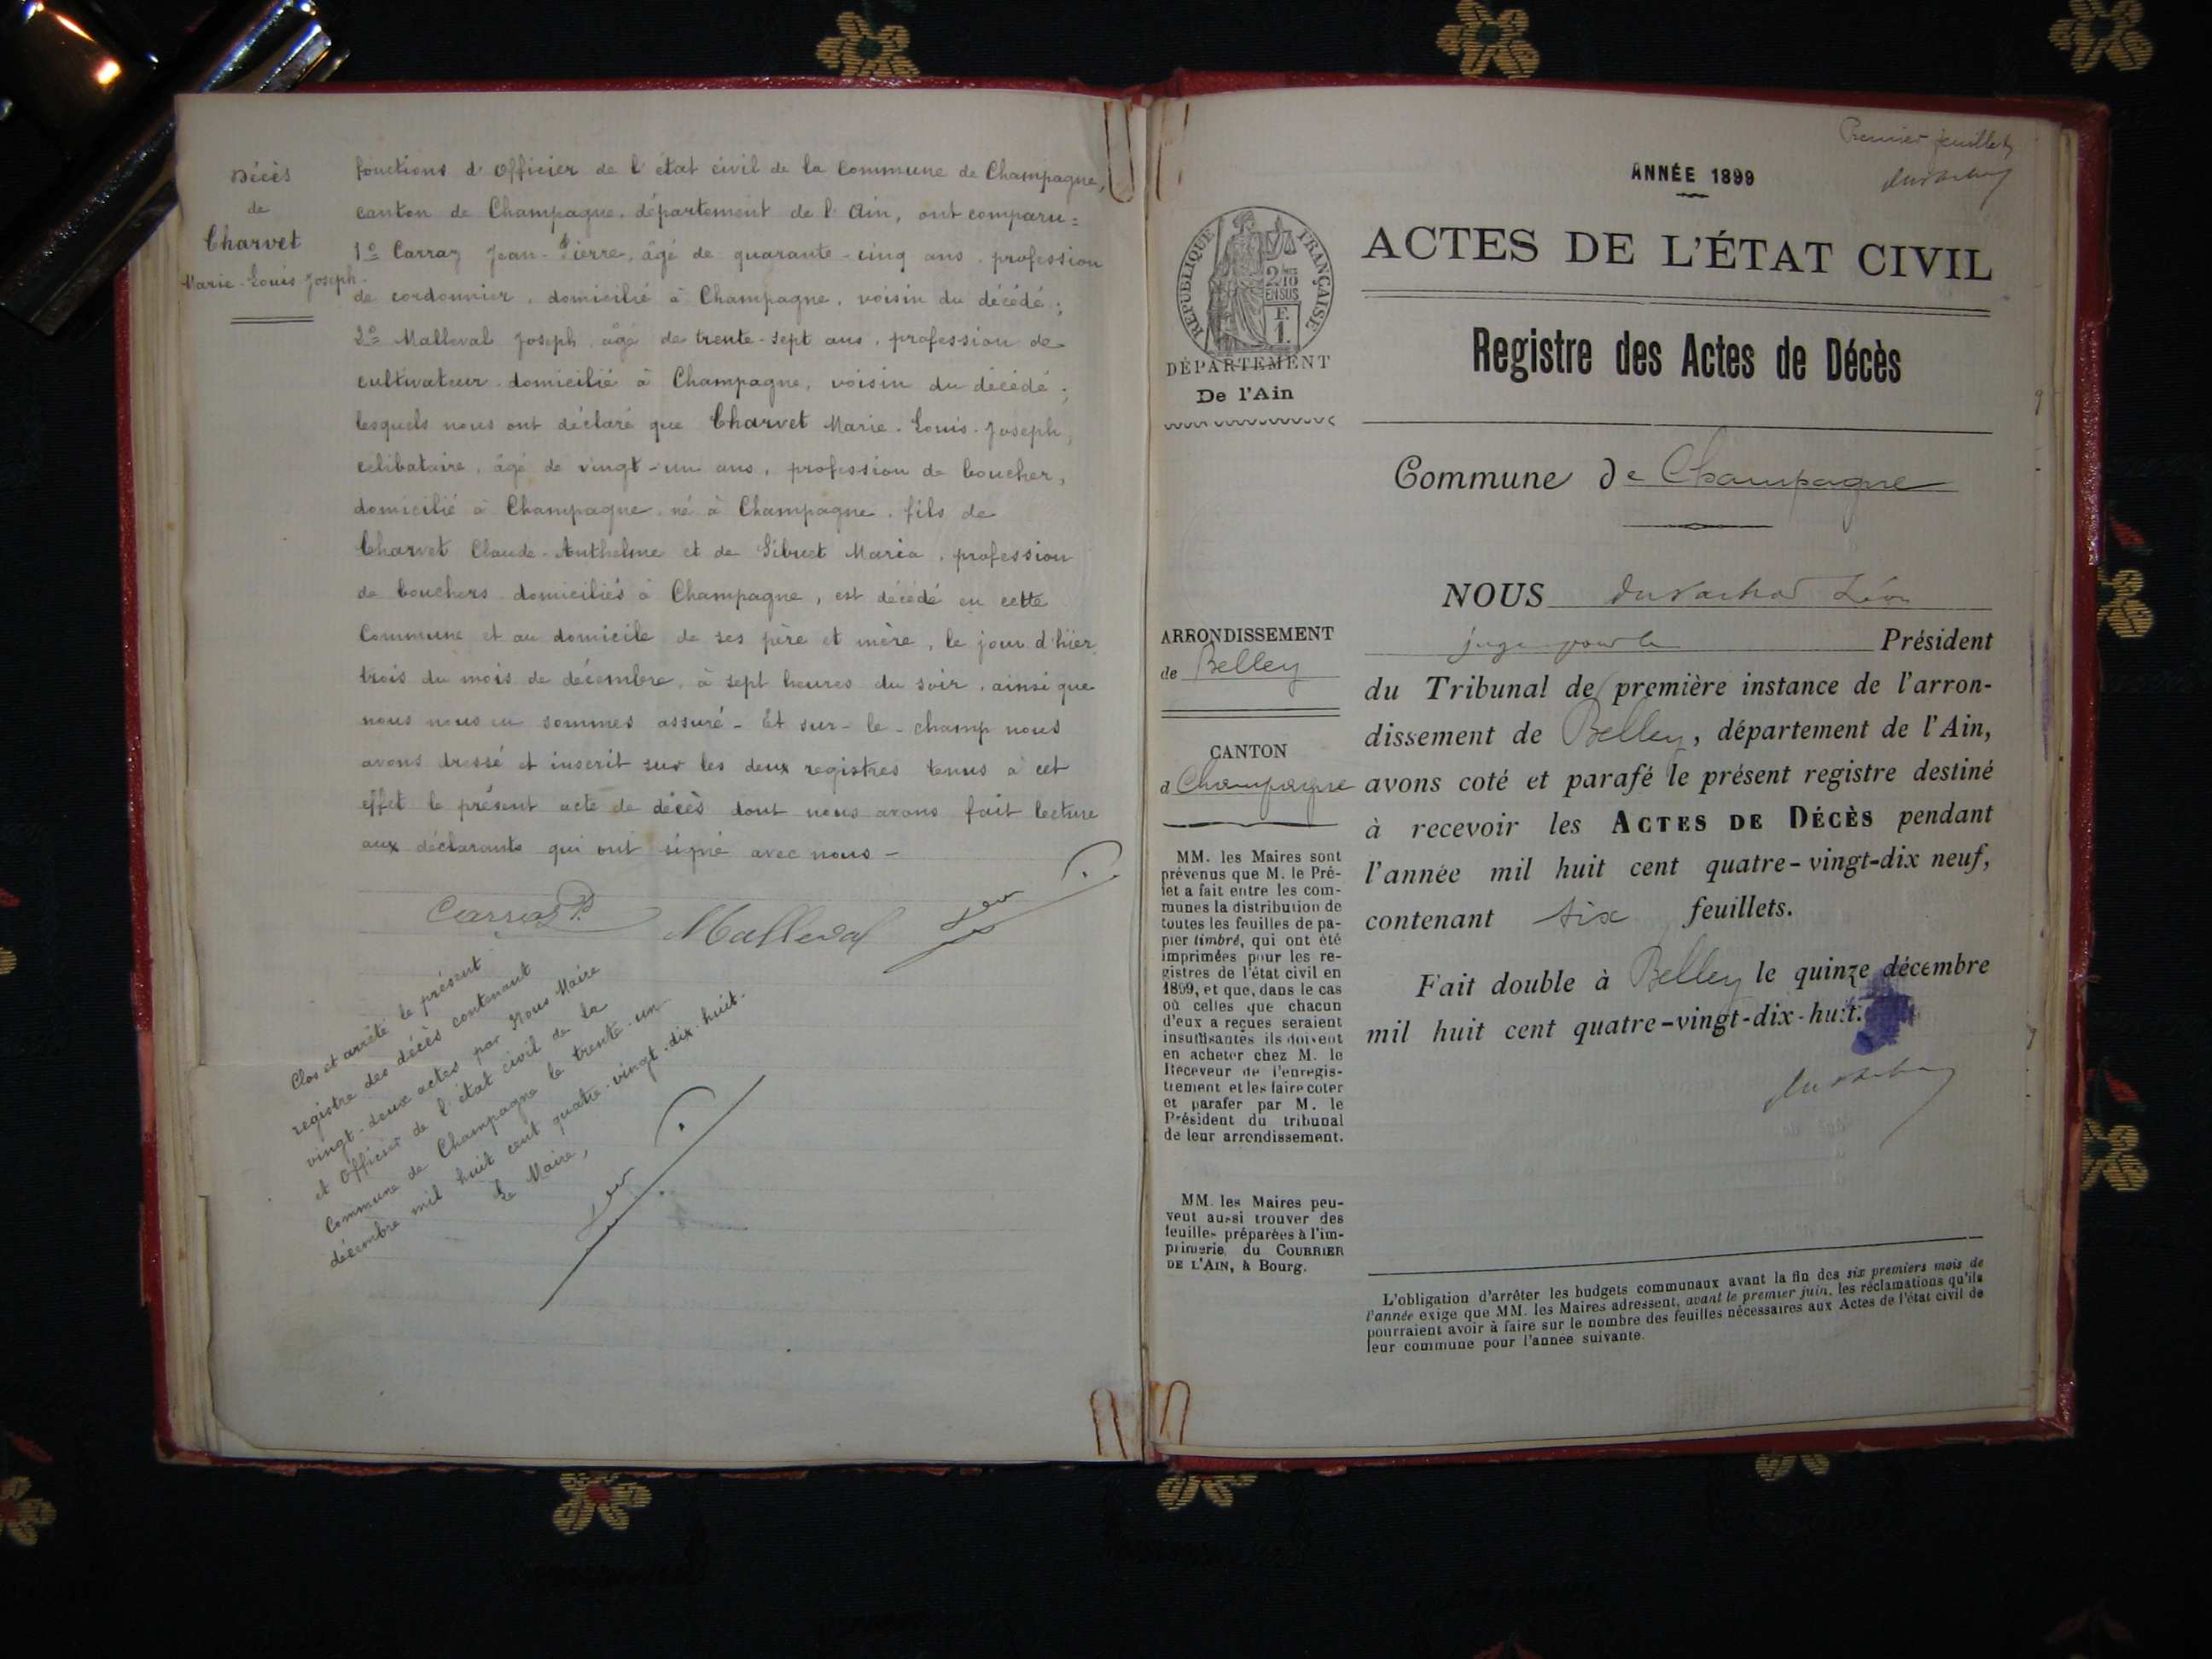 Décès
de
Charvet
Marie-Louis Joseph.
fonctions d'Officier de l'état civil de la Commune de Champagne,
canton de Champagne, département de l'Ain, ont comparu:
1º Carraz Jean-Pierre, âgé de quarante-cinq ans, profession
de cordonnier, domicilié à Champagne, voisin du décédé;
2º Malleval Joseph, âgé de trente-sept ans, profession de
cultivateur domicilié à Champagne, voisin du décédé;
lesquels nous ont déclaré que Charvet Marie-Louis-Joseph,
célibataire, âgé de vingt-un ans, profession de boucher,
domicilié à Champagne né à Champagne, fils de
Charvet Claude-Anthelme et de Sibuet Maria, profession
de bouchers domiciliés à Champagne, est décédé en cette
Commune et au domicile de ses père et mère, le jour d'hier
trois du mois de décembre, à sept heures du soir, ainsi que
nous nous en sommes assuré - Et sur-le-champ nous
avons dressé et inscrit sur les deux registres tenus à cet
effet le présent acte de décès dont nous avons fait lecture
aux déclarants qui ont signé avec nous -
Carraz P. Malleval
Clos et arrêté le présent
registre des décès contenant
vingt-deux actes par Nous Maire
et Officier de l'état civil de la
Commune de Champagne le trente-un
décembre mil huit cent quatre-vingt-dix-huit.
Le Maire,
Premier feuillet
ANNÉE 1899
RÉPUBLIQUE FRANÇAISE
2/10
EN SUS
F.
1.
ACTES DE L'ÉTAT CIVIL
DÉPARTEMENT
De l'Ain
Registre des Actes de Décès
Commune de Champagne
NOUS Léon
juge pour le Président
ARRONDISSEMENT
de Belley
du Tribunal de première instance de l'arron-
dissement de Belley, département de l'Ain,
CANTON
d Champagne
avons coté et parafé le présent registre destiné
à recevoir les ACTES DE DÉCÈS pendant
l'année mil huit cent quatre-vingt-dix neuf,
contenant six feuillets.
Fait double à Belley le quinze décembre
mil huit cent quatre-vingt-dix-huit.
MM. les Maires sont
prévenus que M. le Pré-
fet a fait entre les com-
munes la distribution de
toutes les feuilles de pa-
pier timbré, qui ont été
imprimées pour les re-
gistres de l'état civil en
1899, et que, dans le cas
où celles que chacun
d'eux a reçues seraient
insuffisantes ils doivent
en acheter chez M. le
Receveur de l'enregis-
trement et les faire coter
et parafer par M. le
Président du tribunal
de leur arrondissement.
MM. les Maires peu-
vent aussi trouver des
feuilles préparées à l'im-
primerie du COURRIER
DE L'AIN, à Bourg.
L'obligation d'arrêter les budgets communaux avant la fin des six premiers mois de
l'année exige que MM. les Maires adressent, avant le premier juin, les réclamations qu'ils
pourraient avoir à faire sur le nombre des feuilles nécessaires aux Actes de l'état civil de
leur commune pour l'année suivante.